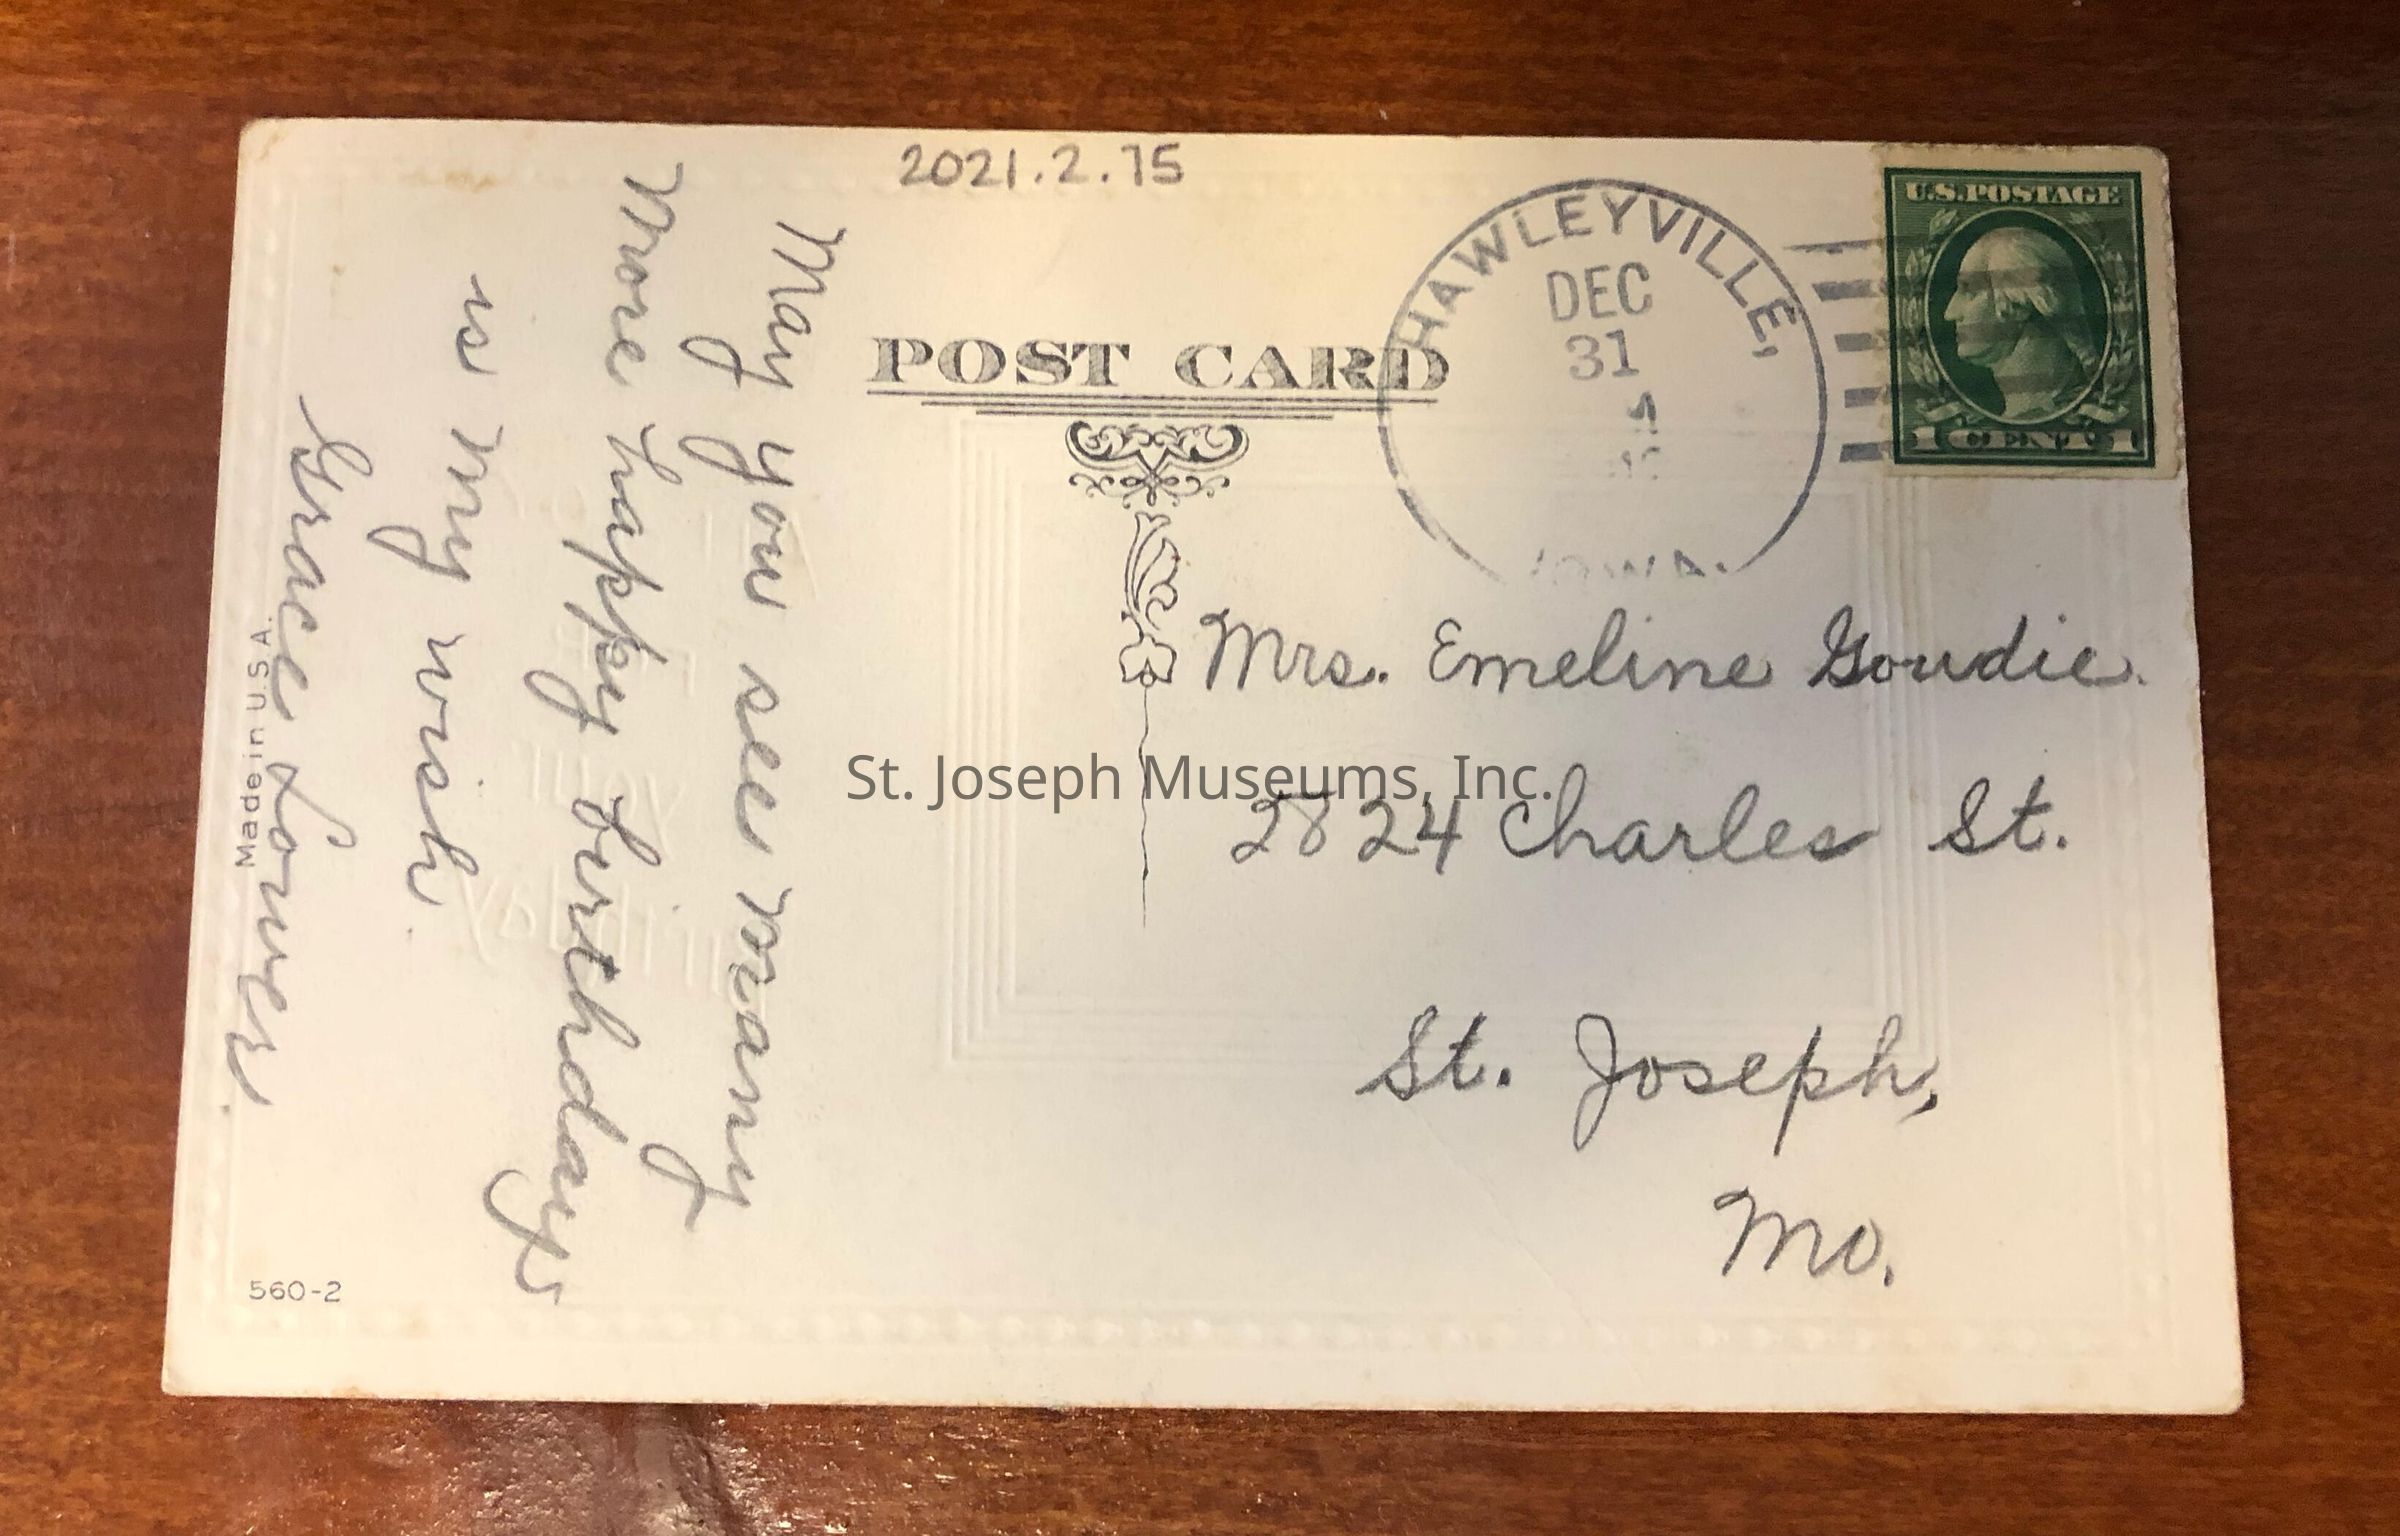 2021.2.15
POST CARD
HAWLEYVILLE,
DEC
31
IOWA.
U.S. POSTAGE
1 CENT 1
May you see many
More happy birthdays
is my wish.
Grace Lower
Mrs. Emeline Goudie.
2824 Charles St.
St. Joseph,
Mo.
Made in U.S.A.
560-2
St. Joseph Museums, Inc.